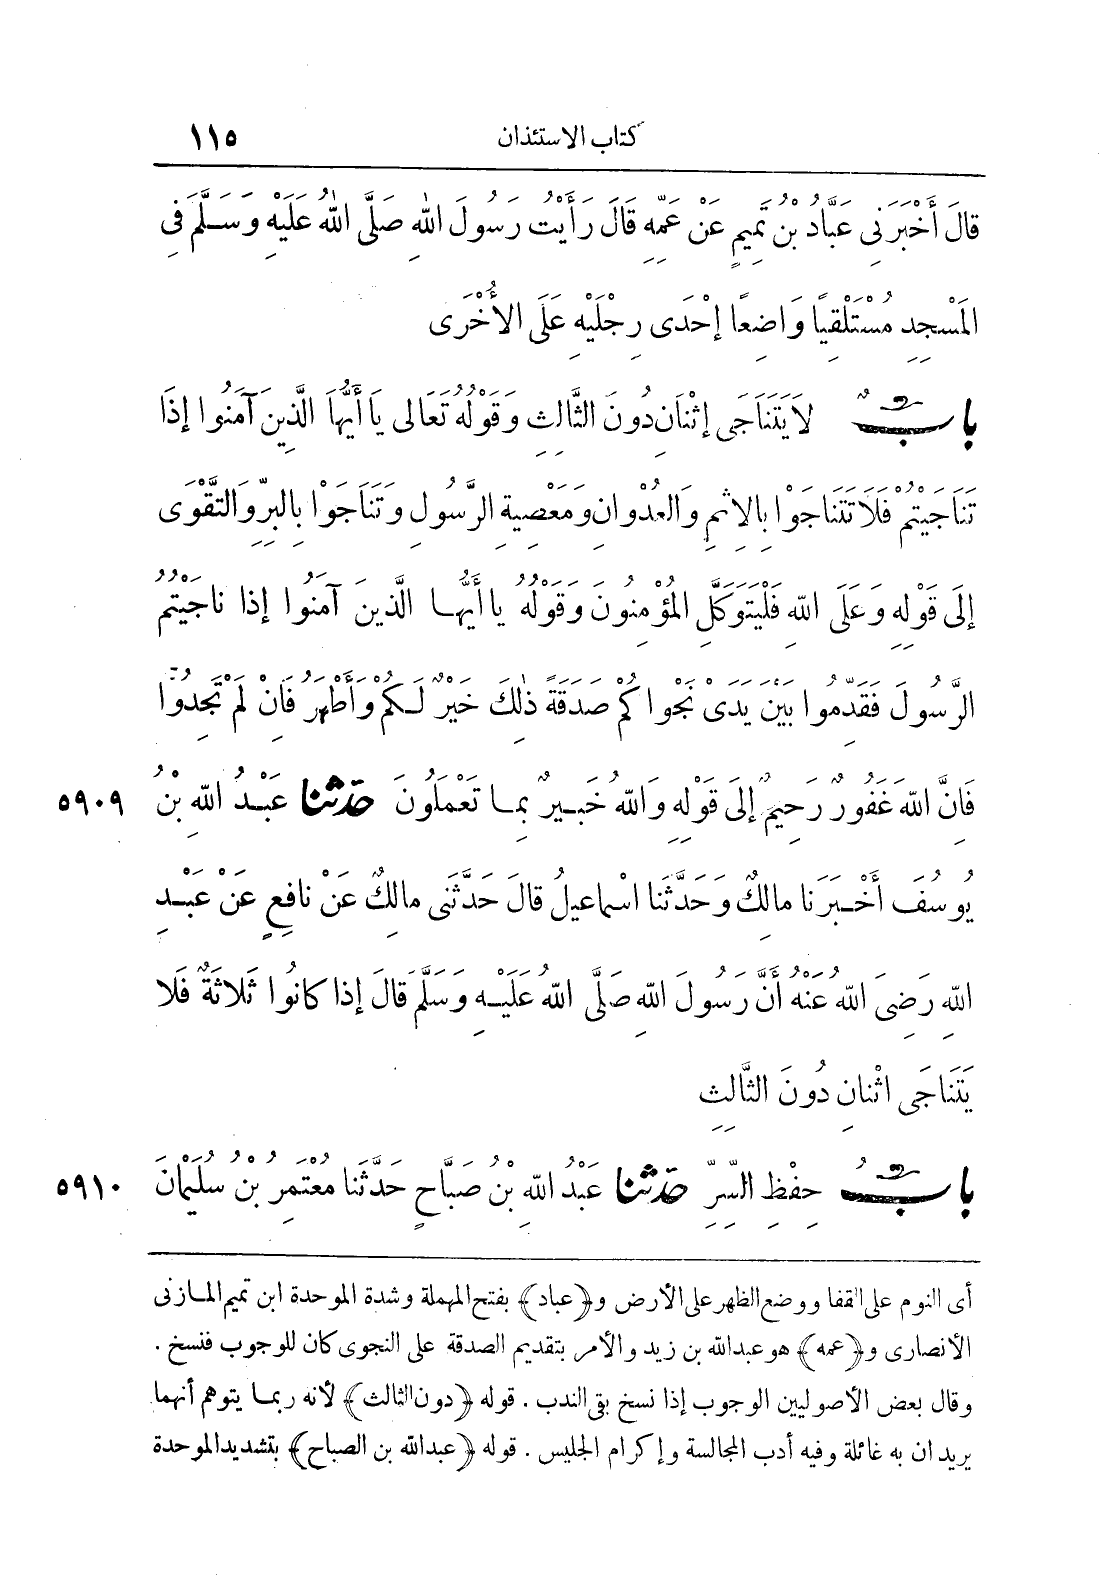 كتاب الاستئذان ١١٥
قَالَ أَخْبَرَنِى عَبَّادُ بْنُ تَمِيمٍ عَنْ عَمِّهِ قَالَ رَأَيْتُ رَسُولَ اللهِ صَلَّى اللهُ عَلَيْهِ وَسَلَّمَ فِى
المَسْجِدِ مُسْتَلْقِيًا وَاضِعًا إِحْدَى رِجْلَيْهِ عَلَى الأُخْرَى
بابٌ لَا يَتَنَاجَى إِثْنَانِ دُونَ الثَّالِثِ وَقَوْلُهُ تَعَالى يَا أَيُّهَا الَّذِينَ آمَنُوا إِذَا
تَنَاجَيْتُمْ فَلَا تَتَنَاجَوْا بِالإِثْمِ وَالعُدْوَانِ وَمَعْصِيةِ الرَّسُولِ وَتَنَاجَوْا بِالبِرِّ وَالتَّقْوَى
إِلَى قَوْلِهِ وَعَلَى اللهِ فَلْيَتَوَكَّلِ المُؤْمِنُونَ وَقَوْلُهُ يَا أَيُّهَا الَّذِينَ آمَنُوا إِذا نَاجَيْتُمُ
الرَّسُولَ فَقَدِّمُوا بَيْنَ يَدَىْ نَجْوَاكُمْ صَدَقَةً ذٰلِكَ خَيْرٌ لَكُمْ وَأَطْهَرُ فَانْ لَمْ تَجِدُوا
فَانَّ اللهَ غَفُورٌ رَحِيمٌ إِلَى قَوْلِهِ وَاللهُ خَبِيرٌ بِمَا تَعْمَلُونَ حَدَّثنا عَبْدُ اللهِ بْنُ ٥٩٠٩
يُوسُفَ أَخْبَرَنَا مالِكٌ وَحَدَّثَنَا اسْمَاعِيلُ قَالَ حَدَّثَنِى مالِكٌ عَنْ نافِعٍ عَنْ عَبْدِ
اللهِ رَضِىَ اللهُ عَنْهُ أَنَّ رَسُولَ اللهِ صَلَّى اللهُ عَلَيْهِ وَسَلَّمَ قَالَ إِذا كانُوا ثَلَاثَةٌ فَلا
يَتَنَاجَى اثْنانِ دُونَ الثَّالِثِ
بابُ حِفْظِ السِّرِّ حَدَّثنا عَبْدُ اللهِ بْنُ صَبَّاحٍ حَدَّثَنا مُعْتَمِرُ بْنُ سُلَيْمَانَ ٥٩١٠
أى النوم على القفا ووضع الظهر على الأرض و﴿عباد﴾ بفتح المهملة وشدة الموحدة ابن تميم المازنى
الأنصارى و﴿عمه﴾ هو عبدالله بن زيد والأمر بتقديم الصدقة على النجوى كان للوجوب فنسخ .
وقال بعض الأصوليين الوجوب إذا نسخ بقى الندب . قوله ﴿دون الثالث﴾ لأنه ربما يتوهم أنهما
يريدان به غائلة وفيه أدب المجالسة وإكرام الجليس . قوله ﴿عبدالله بن الصباح﴾ بتشديد الموحدة